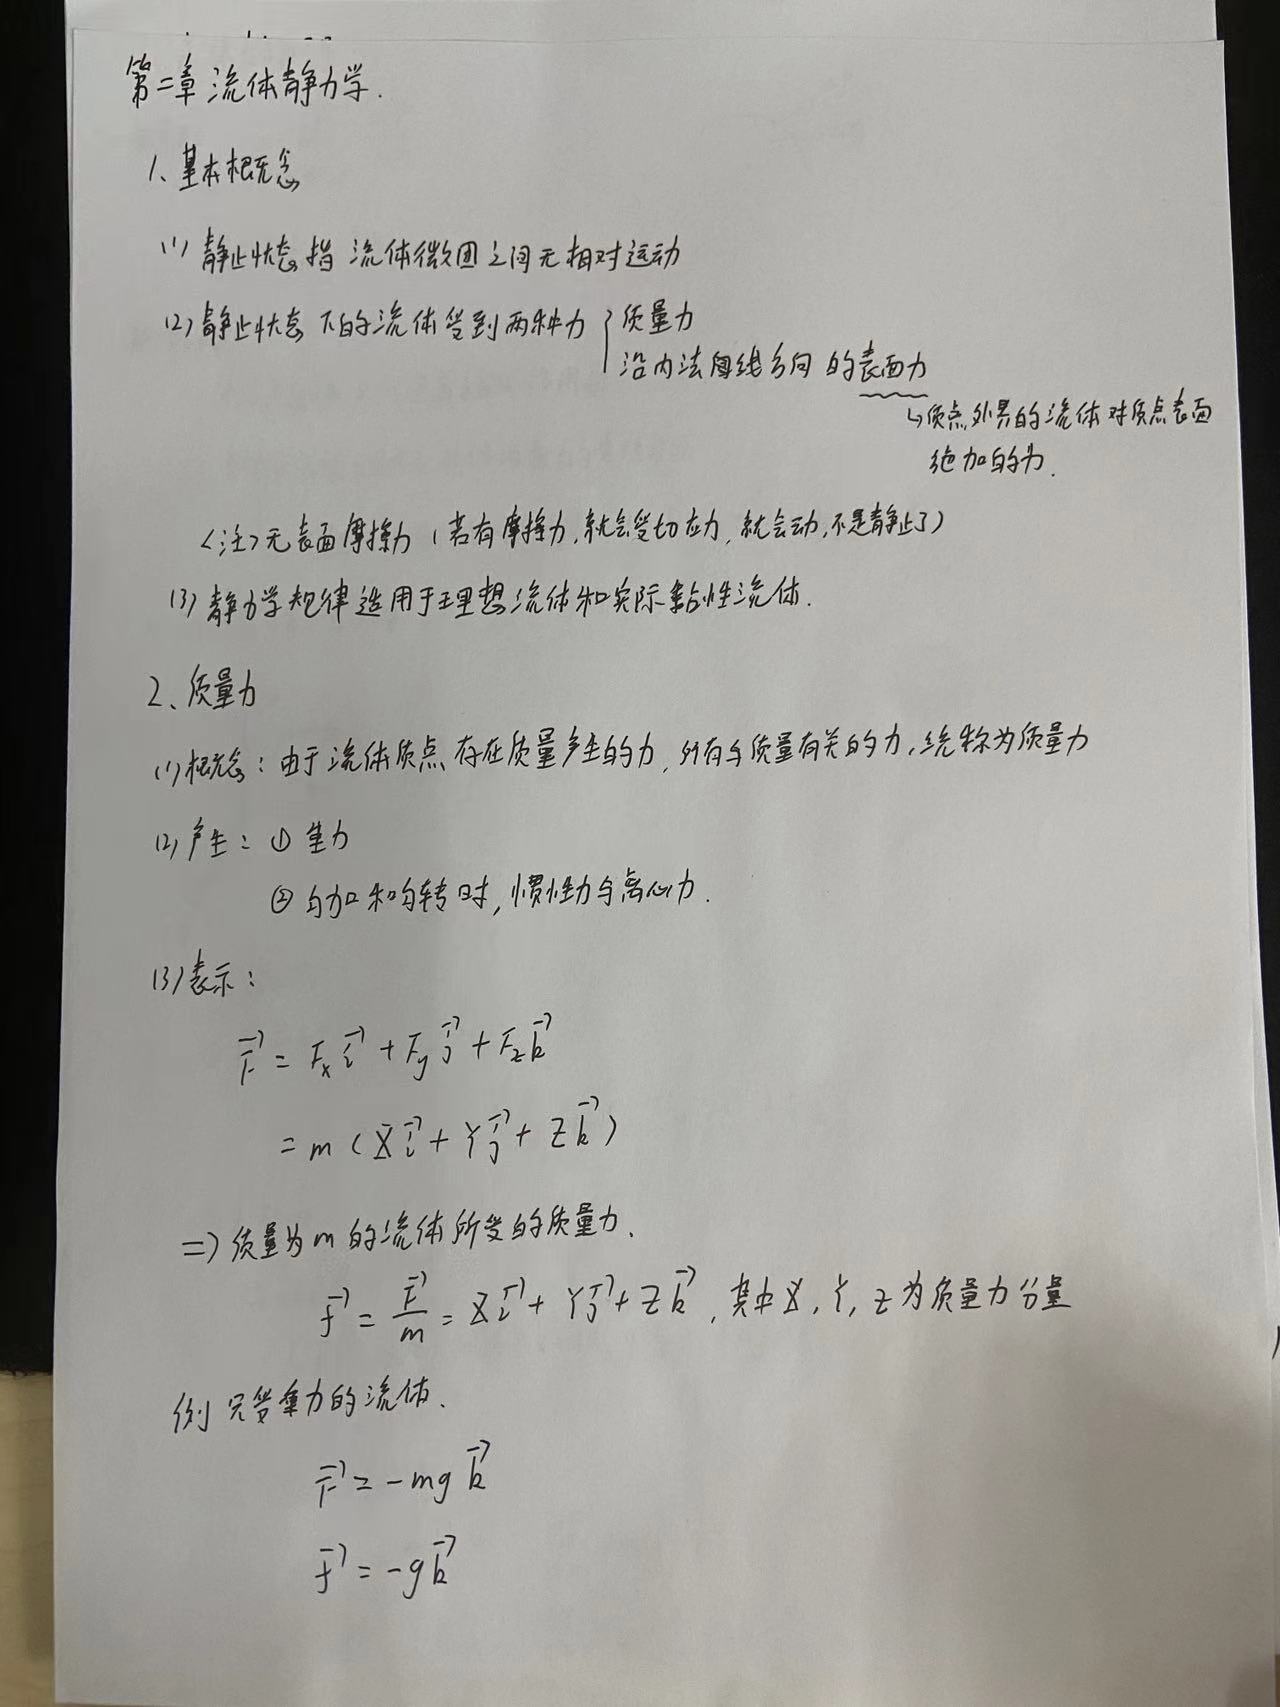 第二章 流体静力学.
1、基本概念
(1) 静止状态指 流体微团之间无相对运动
(2) 静止状态下的流体受到两种力 { 质量力
沿内法线方向的表面力
↳质点外界的流体对质点表面
施加的力.
<注>无表面摩擦力 (若有摩擦力,就会受切应力,就会动,不是静止了)
(3) 静力学规律适用于理想流体和实际黏性流体.
2、质量力
(1) 概念:由于流体质点存在质量产生的力,所有与质量有关的力,统称为质量力
(2) 产生:① 重力
② 匀加和匀转时,惯性力与离心力.
(3) 表示:
F⃗ = Fₓi⃗ + F_y j⃗ + F_z k⃗
= m (Xi⃗ + Yj⃗ + Zk⃗)
=> 质量为m的流体所受的质量力.
f⃗ = F⃗/m = Xi⃗ + Yj⃗ + Zk⃗,其中X,Y,Z为质量力分量
例 只受重力的流体.
F⃗ = -mgk⃗
f⃗ = -gk⃗